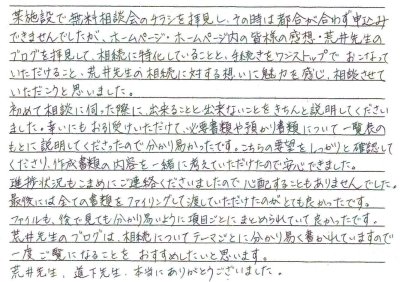 某施設で無料相談会のチラシを拝見し、その時は都合が合わず申込み
できませんでしたが、ホームページ・ホームページ内の皆様の感想・荒井先生の
ブログを拝見して、相続に特化していることと、手続きをワンストップで おこなって
いただけること、荒井先生の相続に対する想いに魅力を感じ、相談させて
いただこうと思いました。
初めて相談に伺った際に、出来ることと出来ないことをきちんと説明してください
ました。幸いにもお引受けいただけて、必要書類や預かり書類について一覧表の
もとに説明してくださったので分かり易かったです。こちらの要望をしっかりと確認して
くださり、作成書類の内容を一緒に考えていただけたので安心できました。
進捗状況もこまめにご連絡くださいましたので心配することもありませんでした。
最後には全ての書類をファイリングして渡していただけたのがとても良かったです。
ファイルも、後で見ても分かり易いように項目ごとにまとめられていて良かったです。
荒井先生のブログは、相続についてテーマごとに分かり易く書かれていますので
一度ご覧になることをおすすめしたいと思います。
荒井先生、道下先生、本当にありがとうございました。